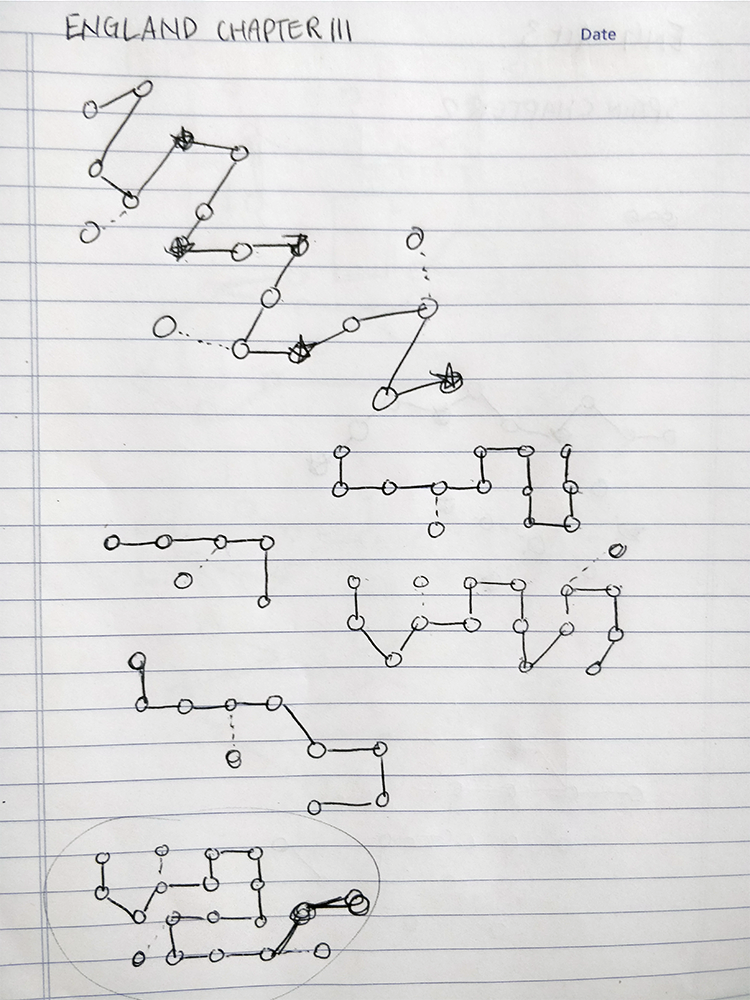 ENGLAND CHAPTER III
Date